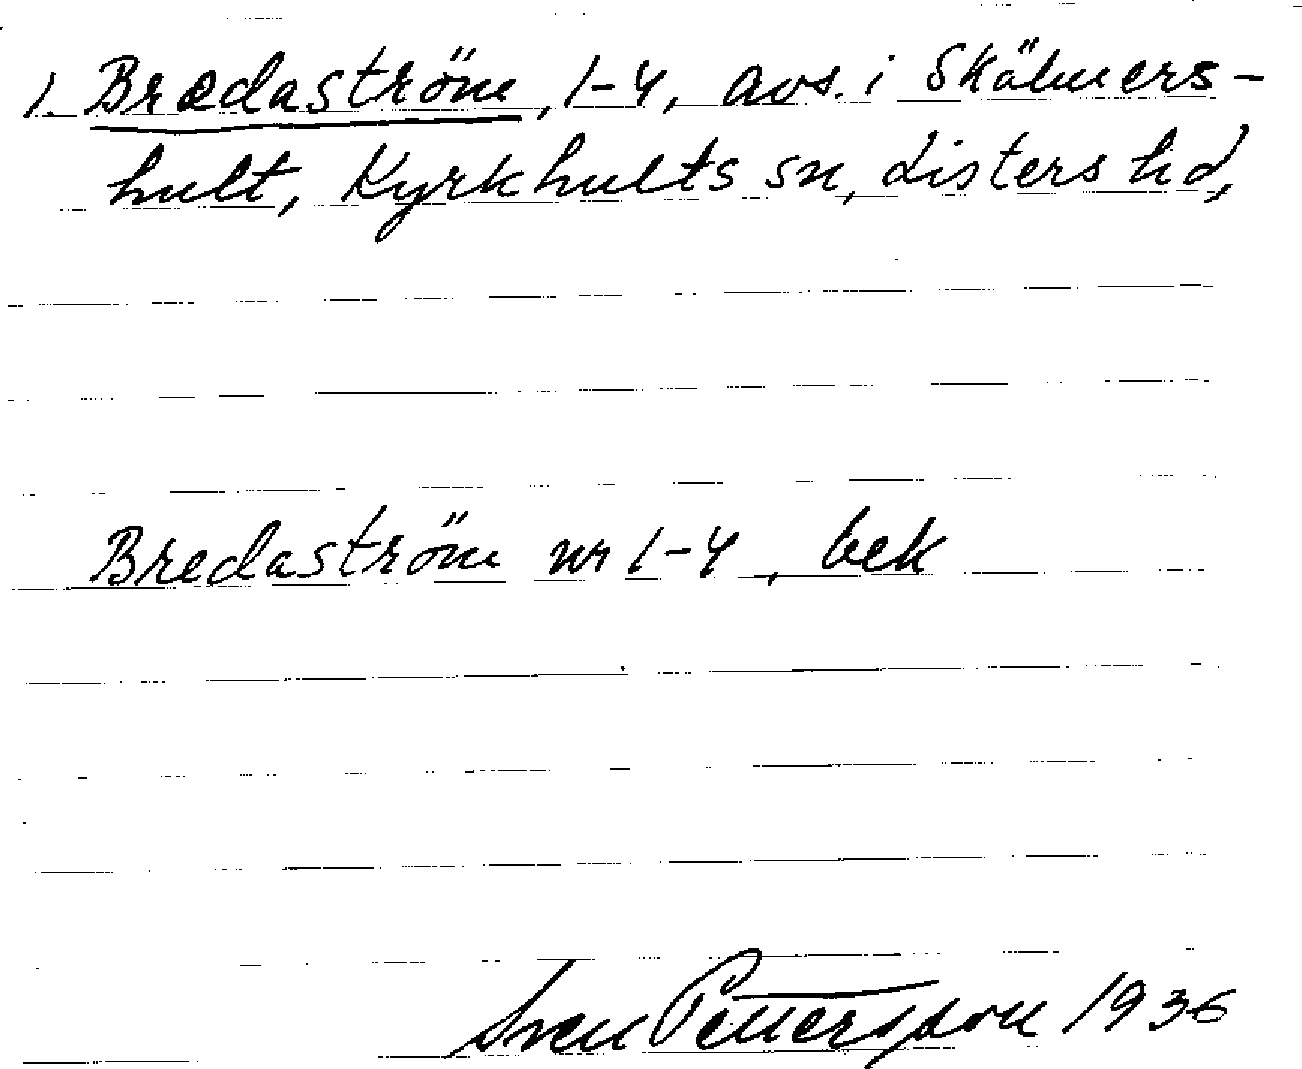 1. Bredaström, 1-4, avs. i Skälmers-
hult, Kyrkhults sn, Listers hd,
Bredaström nr 1-4, bek
Sven Pettersson 1936